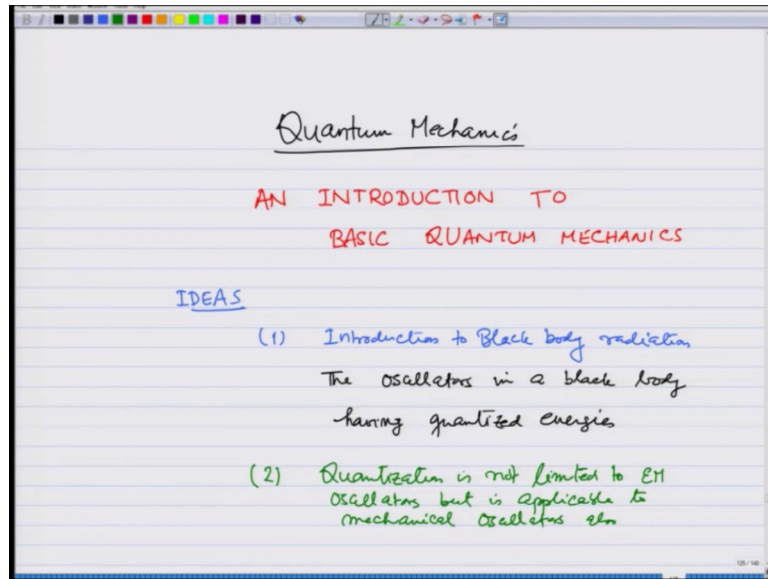 Quantum Mechanics
AN INTRODUCTION TO
BASIC QUANTUM MECHANICS
IDEAS
(1) Introduction to Black body radiation
The osallators in a black body
having quantized energies
(2) Quantization is not limited to EM
osallators but is applicable to
mechanical osallators also
125 / 140